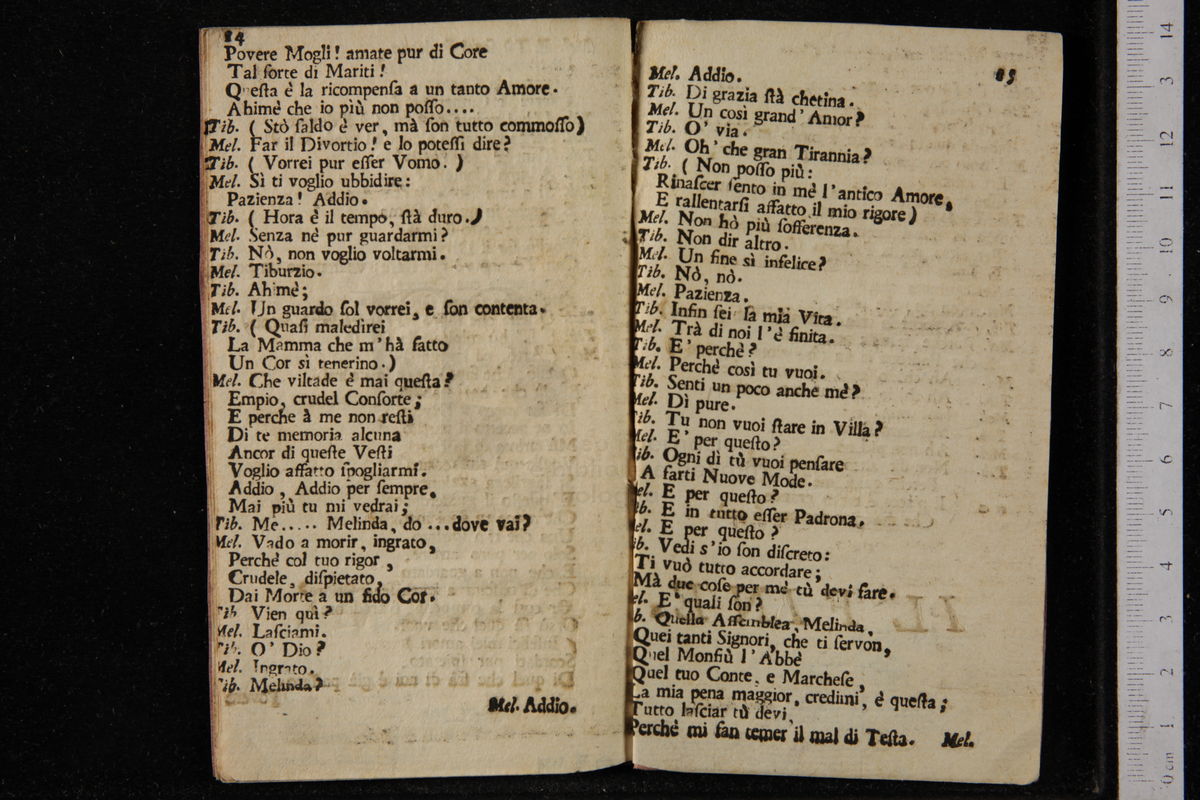 84
Povere Mogli! amate pur di Core
Tal ſorte di Mariti!
Queſta è la ricompenſa a un tanto Amore.
Ahimè che io più non poſſo....
Tib. ( Stò ſaldo è ver, mà ſon tutto commoſſo)
Mel. Far il Divortio! e lo poteſſi dire?
Tib. ( Vorrei pur eſſer Vomo. )
Mel. Sì ti voglio ubbidire:
Pazienza! Addio.
Tib. ( Hora è il tempo, ſtà duro.)
Mel. Senza nè pur guardarmi?
Tib. Nò, non voglio voltarmi.
Mel. Tiburzio.
Tib. Ahimè;
Mel. Un guardo ſol vorrei, e ſon contenta.
Tib. ( Quaſi maledirei
La Mamma che m'hà fatto
Un Cor sì tenerino.)
Mel. Che viltade è mai queſta?
Empio, crudel Conſorte;
E perche à me non reſti
Di te memoria alcuna
Ancor di queſte Veſti
Voglio affatto ſpogliarmi.
Addio, Addio per ſempre,
Mai più tu mi vedrai;
Tib. Me..... Melinda, do ...dove vai?
Mel. Vado a morir, ingrato,
Perchè col tuo rigor,
Crudele, diſpietato,
Dai Morte a un fido Cor.
Tib. Vien quì?
Mel. Laſciami.
Tib. O' Dio?
Mel. Ingrato.
Tib. Melinda?
Mel. Addio.
85
Mel. Addio.
Tib. Di grazia ſtà chetina.
Mel. Un così grand' Amor?
Tib. O' via.
Mel. Oh' che gran Tirannia?
Tib. ( Non poſſo più:
Rinaſcer ſento in mè l'antico Amore,
E rallentarſi affatto il mio rigore)
Mel. Non hò più ſofferenza.
Tib. Non dir altro.
Mel. Un fine sì infelice?
Tib. Nò, nò.
Mel. Pazienza.
Tib. Infin ſei la mia Vita.
Mel. Trà di noi l'è finita.
Tib. E' perchè?
Mel. Perchè così tu vuoi.
Tib. Senti un poco anche mè?
Mel. Dì pure.
Tib. Tu non vuoi ſtare in Villa?
Mel. E' per queſto?
Tib. Ogni dì tù vuoi penſare
A farti Nuove Mode.
Mel. E per queſto?
Tib. E in tutto eſſer Padrona.
Mel. E per queſto?
Tib. Vedi s'io ſon diſcreto:
Ti vuò tutto accordare;
Mà due coſe per mè tù devi fare.
Mel. E' quali ſon?
Tib. Quella Aſſemblea, Melinda,
Quei tanti Signori, che ti ſervon,
Quel Monſiù l'Abbè
Quel tuo Conte, e Marcheſe,
La mia pena maggior, credimi, è queſta;
Tutto laſciar tù devi,
Perchè mi fan temer il mal di Teſta.
Mel.